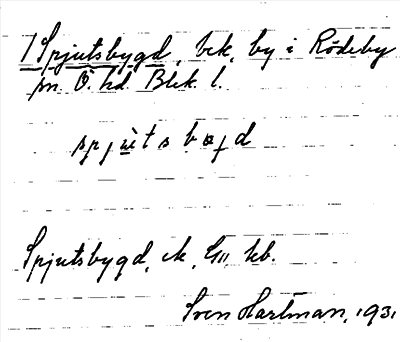 1 Spjutsbygd, bek, by i Rödeby
sn. Ö. hd. Blek. l.
spjùtsbøjd
Spjutsbygd, ek, Gu, kb.
Sven Hartman, 1931